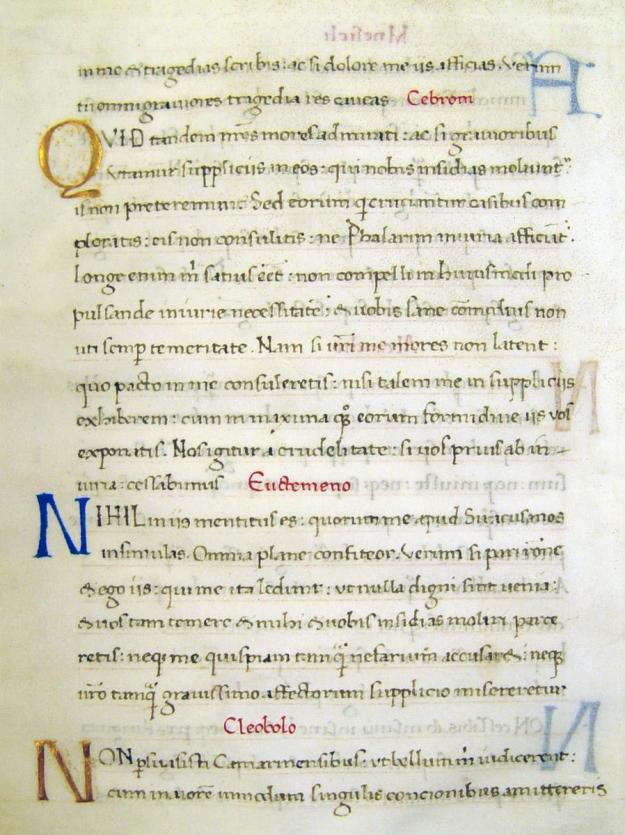 in me & tragedias scribis: ac si dolore me iis afficias. Verum
tu omni grauiores tragedia res cantas Cebroni
QVID tandem mr̄os mores admirati: ac si grauioribus
utamur suppliciis in eos: qui nobis insidias moliunt᷒
id non preteremini: Sed eorum q̄ cruciantur casibus com
ploratis: eis non consulitis: ne Phalarim iniuria afficiāt.
Longe enim m̄ satius eēt: non compelli in huiusmodi pro
pulsande iniurie necessitate: & uobis sane cōmodius non
uti semp temeritate. Nam si ur̄i me mores non latent:
quo pacto in me consuleretis: nisi talem me in suppliciis
exhiberem: cum in maxima q̄ eorum formidine iis uos
exponitis. Nos igitur a crudelitate: si uos prius ab in
iuria: cessabimus Euctemeno
NIHIL in iis mentitus es: quorum me apud Siracusanos
insimulas. Omnia plane confiteor. Verum si pari rōne
& ego iis: qui me ita ledunt: ut nulla digni sint uenia:
& uos tam temere & mihi & uobis insidias moliri parce
retis: neq; me quispiam tamq̄ nefarium accusaret: neq;
ur̄o tamq̄ grauissimo affectorum supplicio misereretur
Cleobolo
NON psuasisti Camarinensibus: ut bellum m̄ indicerent:
cum in uorē immodum singulis concionibus amitteretis